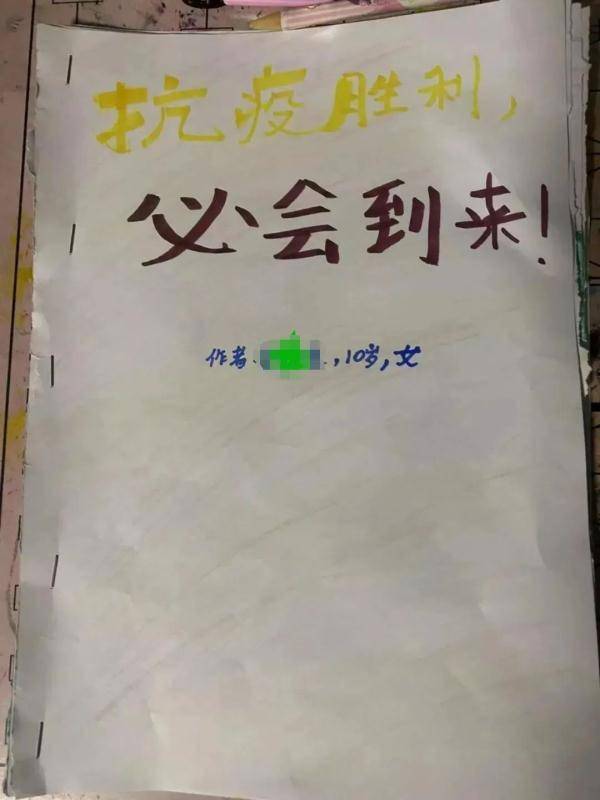 抗疫胜利，
必会到来！
作者：，10岁，女